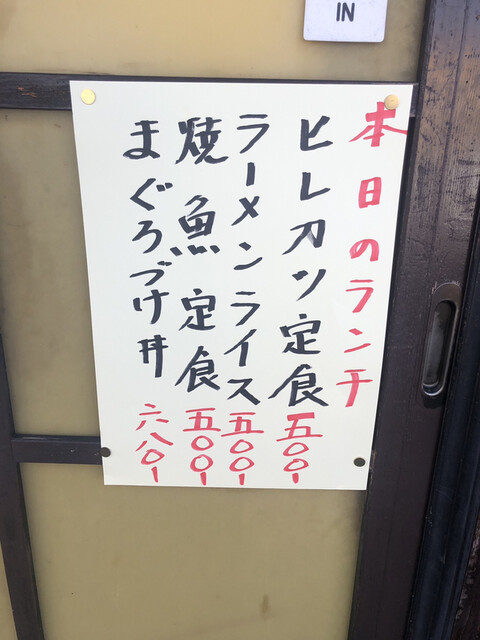 IN
本日のランチ
ヒレカツ定食 五〇〇ー
ラーメンライス 五〇〇ー
焼魚定食 五〇〇ー
まぐろづけ丼 六八〇ー